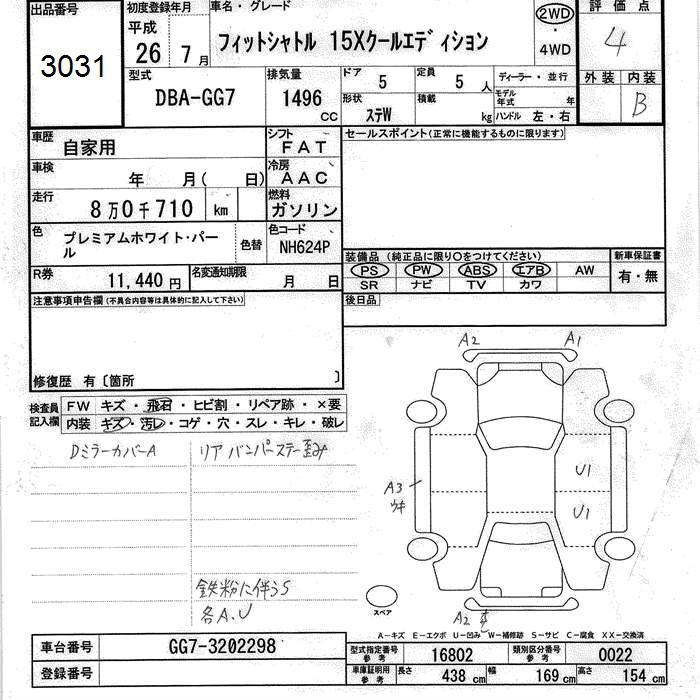 出品番号
3031
初度登録年月
平成
26 7月
車名・グレード
フィットシャトル 15Xクールエディション
2WD
・
4WD
評価点
4
外装 内装
B
型式
DBA-GG7
排気量
1496
CC
ドア
5
定員
5 人
形状
ステW
積載
kg
ディーラー・並行
モデル年式 年
ハンドル 左・右
車歴
自家用
シフト
FAT
車検
年 月( 日)
冷房
AAC
走行
8万0千710 km
燃料
ガソリン
色
プレミアムホワイト・パール
色替
色コード
NH624P
R券
11,440 円
名変通知期限
月 日
セールスポイント(正常に機能するものに限ります)
装備品(純正品に限り〇をつけてください)
PS PW ABS エアB AW
SR ナビ TV カワ
新車保証書
有・無
後日品
注意事項申告欄(不具合内容等は具体的に記入して下さい)
修復歴 有〔箇所 〕
検査員記入欄
FW キズ・飛石・ヒビ割・リペア跡・×要
内装 キズ・汚レ・コゲ・穴・スレ・キレ・破レ
DミラーカバーA
リアバンパーステー歪み
鉄粉に伴うS
各A.U
A2
A1
A3
ウキ
U1
U1
A2
スペア
A-キズ E-エクボ U-凹み W-補修跡 S-サビ C-腐食 XX-交換済
車台番号
GG7-3202298
登録番号
型式指定番号
参考
16802
類別区分番号
参考
0022
車庫証明用
参考
長さ
438 cm
幅
169 cm
高さ
154 cm